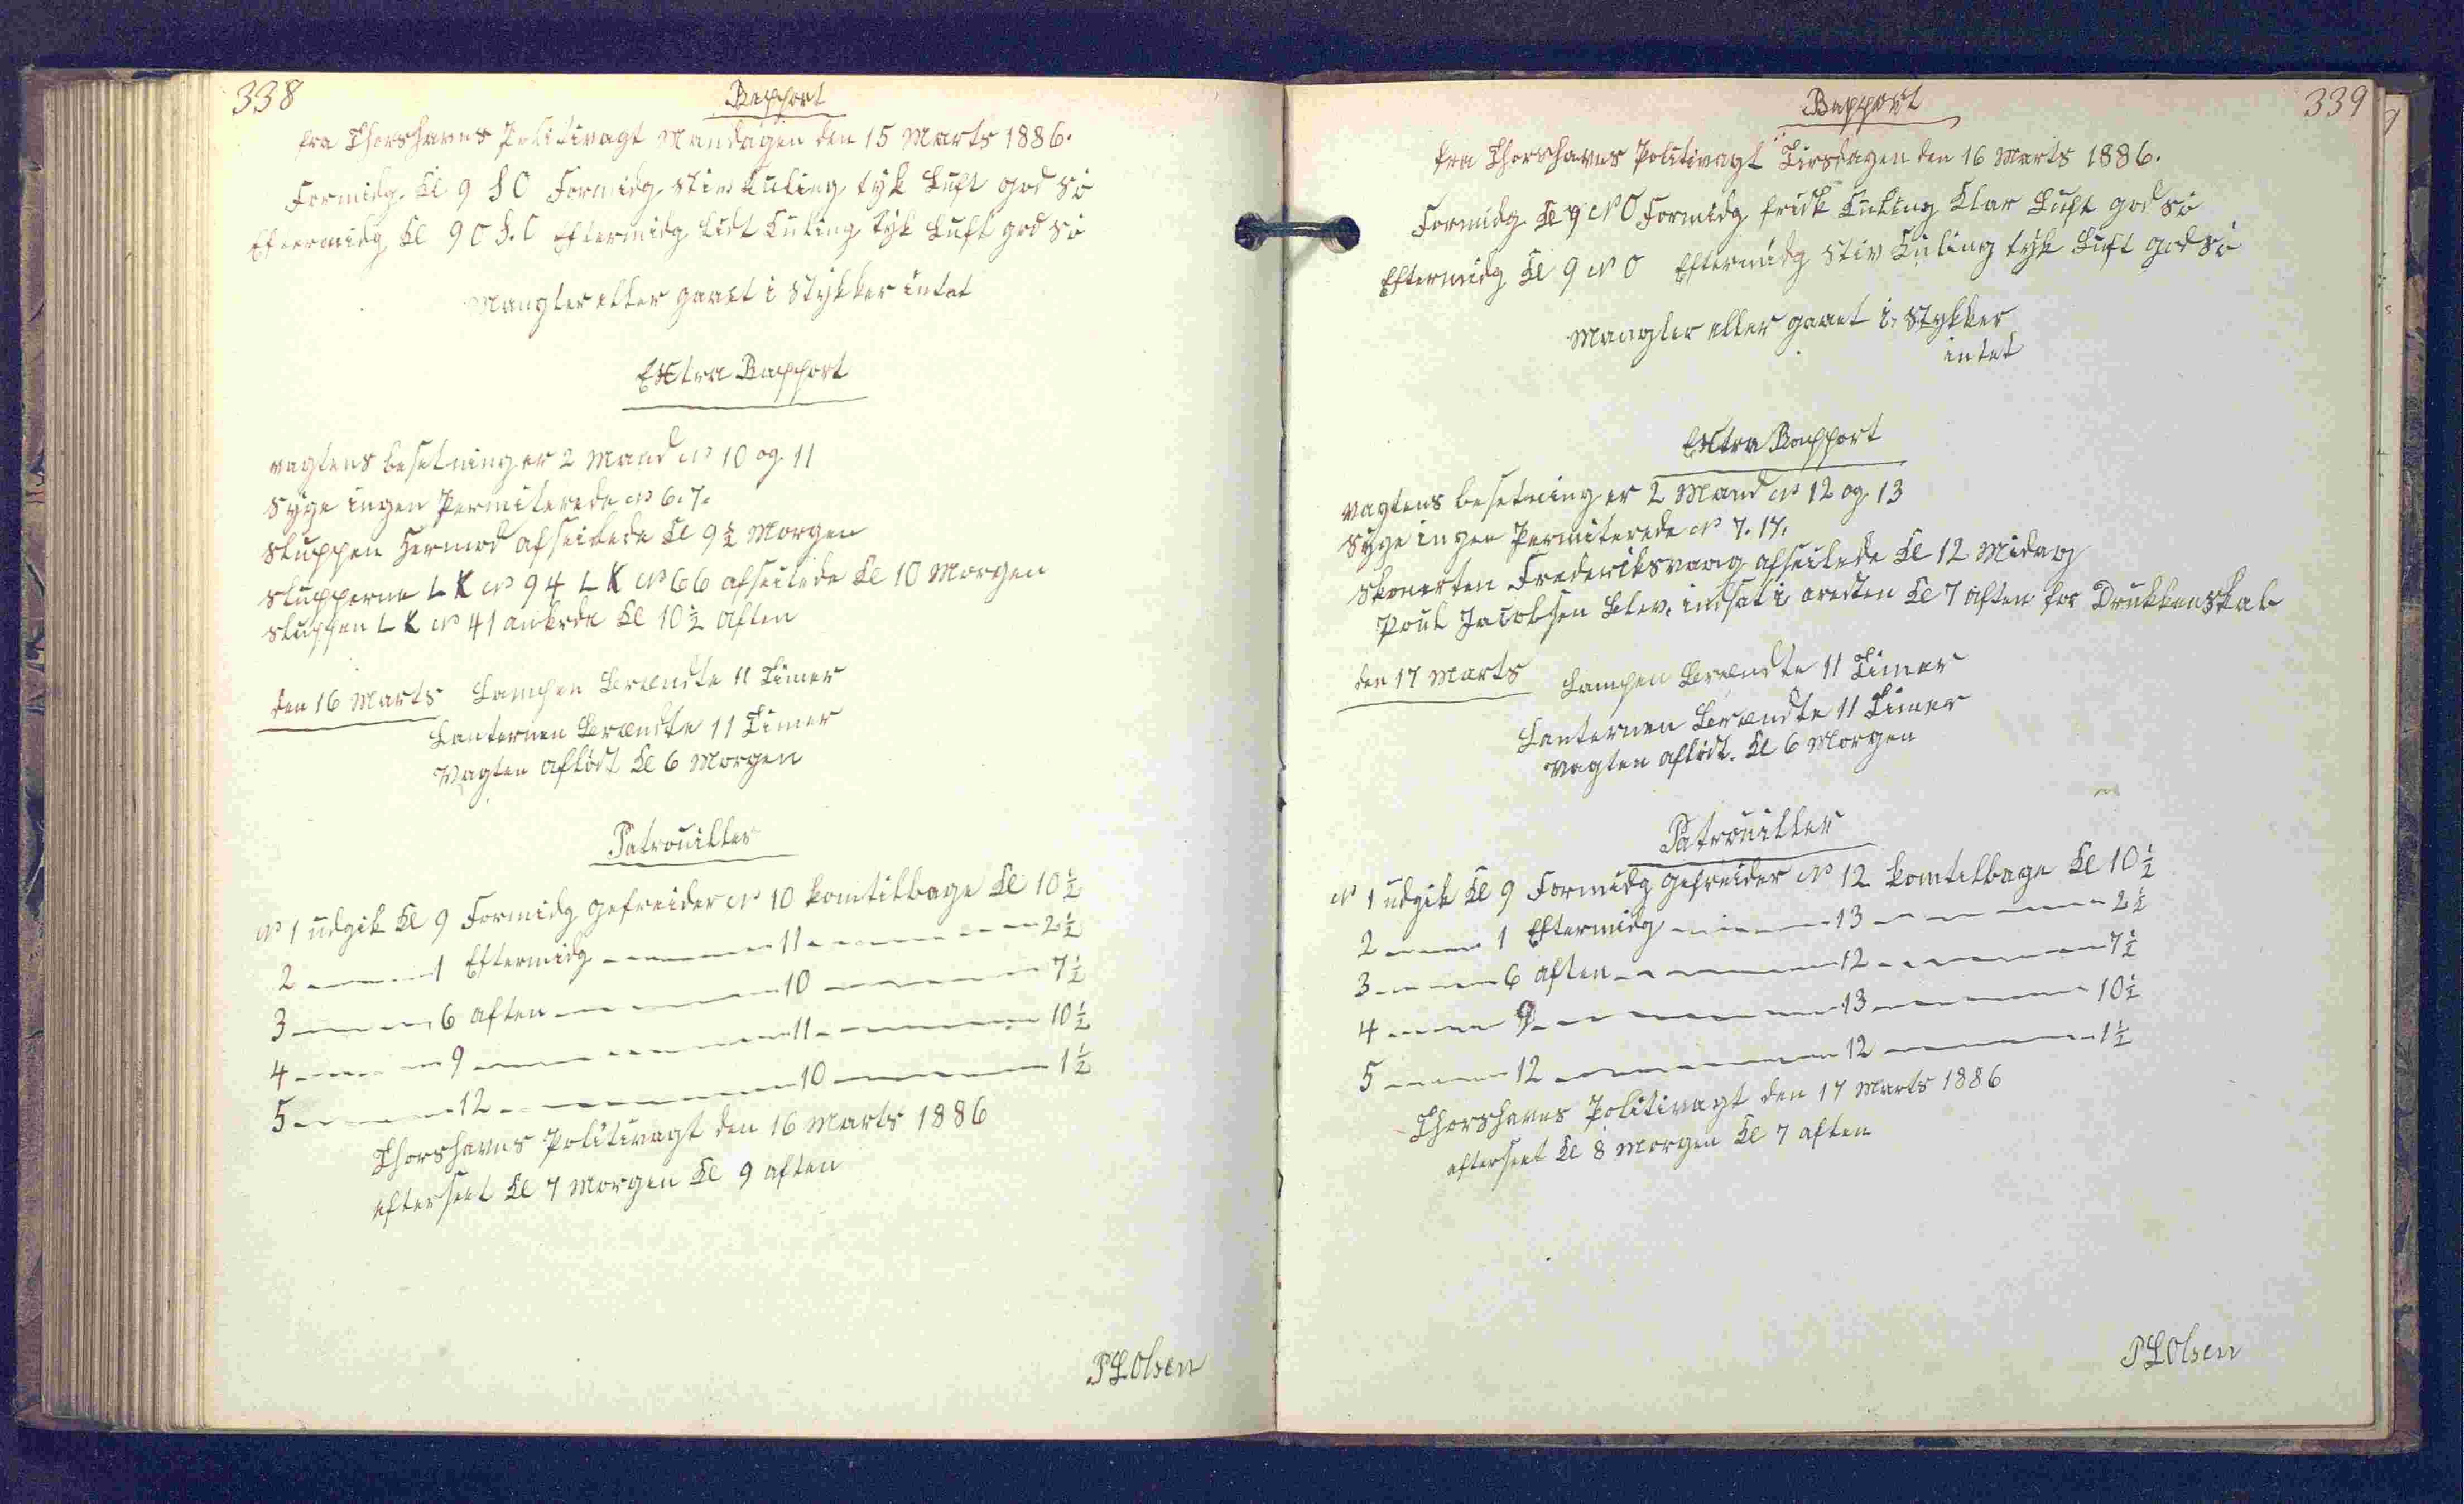 338
Rapport
fra Thorshavns Politivagt Mandagen den 15 Marts 1886.
Formidg. Kl 9 S O Formidg stiv Kuling tyk Luft god Sö
Eftermidg Kl 9 O S. O Eftermidg Lidt Kuling tyk Luft god Sö
Mangler eller gaaet i Stykker intet
Extra Rapport
Vagtens besetning er 2 Mand No 10 og 11
Syge ingen Permiterede No 6. 7.
Sluppen Hermod afseilede Kl 9 1/2 Morgen
Slupperne L K No 94 L K No 66 afseilede Kl 10 Morgen
Sluppen L K No 41 ankrede Kl 10 1/2 Aften
den 16 Marts Lampen Brændte 11 Timer
Lanternen Brændte 11 Timer
Vagten aflöst Kl 6 Morgen
Patrouiller
No 1 udgik Kl 9 Formidg Gefreider No 10 kom tilbage Kl 10 1/2
2 — 1 Eftermidg — 11 — 2 1/2
3 — 6 Aften — 10 — 7 1/2
4 — 9 — 11 — 10 1/2
5 — 12 — 10 — 1 1/2
Thorshavns Politivagt den 16 Marts 1886
efterseet Kl 7 Morgen Kl 9 Aften
P L Olsen
339
Rapport
fra Thorshavns Politivagt Tirsdagen den 16 Marts 1886.
Formidg Kl 9 N O Formidg frisk Kuling Klar Luft god Sö
Eftermidg Kl 9 N O Eftermidg Stiv Kuling tyk Luft god Sö
Mangler eller gaaet i Stykker
intet
Extra Rapport
Vagtens besetning er 2 Mand No 12 og 13
Syge ingen Permiterede No 7. 17.
Skonerten Frederiksvaag afseilede Kl 12 Midag
Poul Jacobsen Blev indsat i Aresten Kl 7 Aften for Drukkenskab
den 17 Marts Lampen Brændte 11 Timer
Lanternen Brændte 11 Timer
Vagten aflöst. Kl 6 Morgen
Patrouiller
No 1 udgik Kl 9 Formidg Gefreider No 12 kom tilbage Kl 10 1/2
2 — 1 Eftermidg — 13 — 2 1/2
3 — 6 Aften — 12 — 7 1/2
4 — 9 — 13 — 10 1/2
5 — 12 — 12 — 1 1/2
Thorshavns Politivagt den 17 Marts 1886
efterseet Kl 8 Morgen Kl 7 Aften
P L Olsen